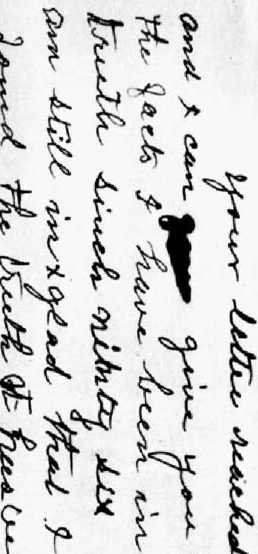 Your letter reached
and I can give you
the facts I have been in
truth sinch ninty six
am still in & glad that I
found the truth It